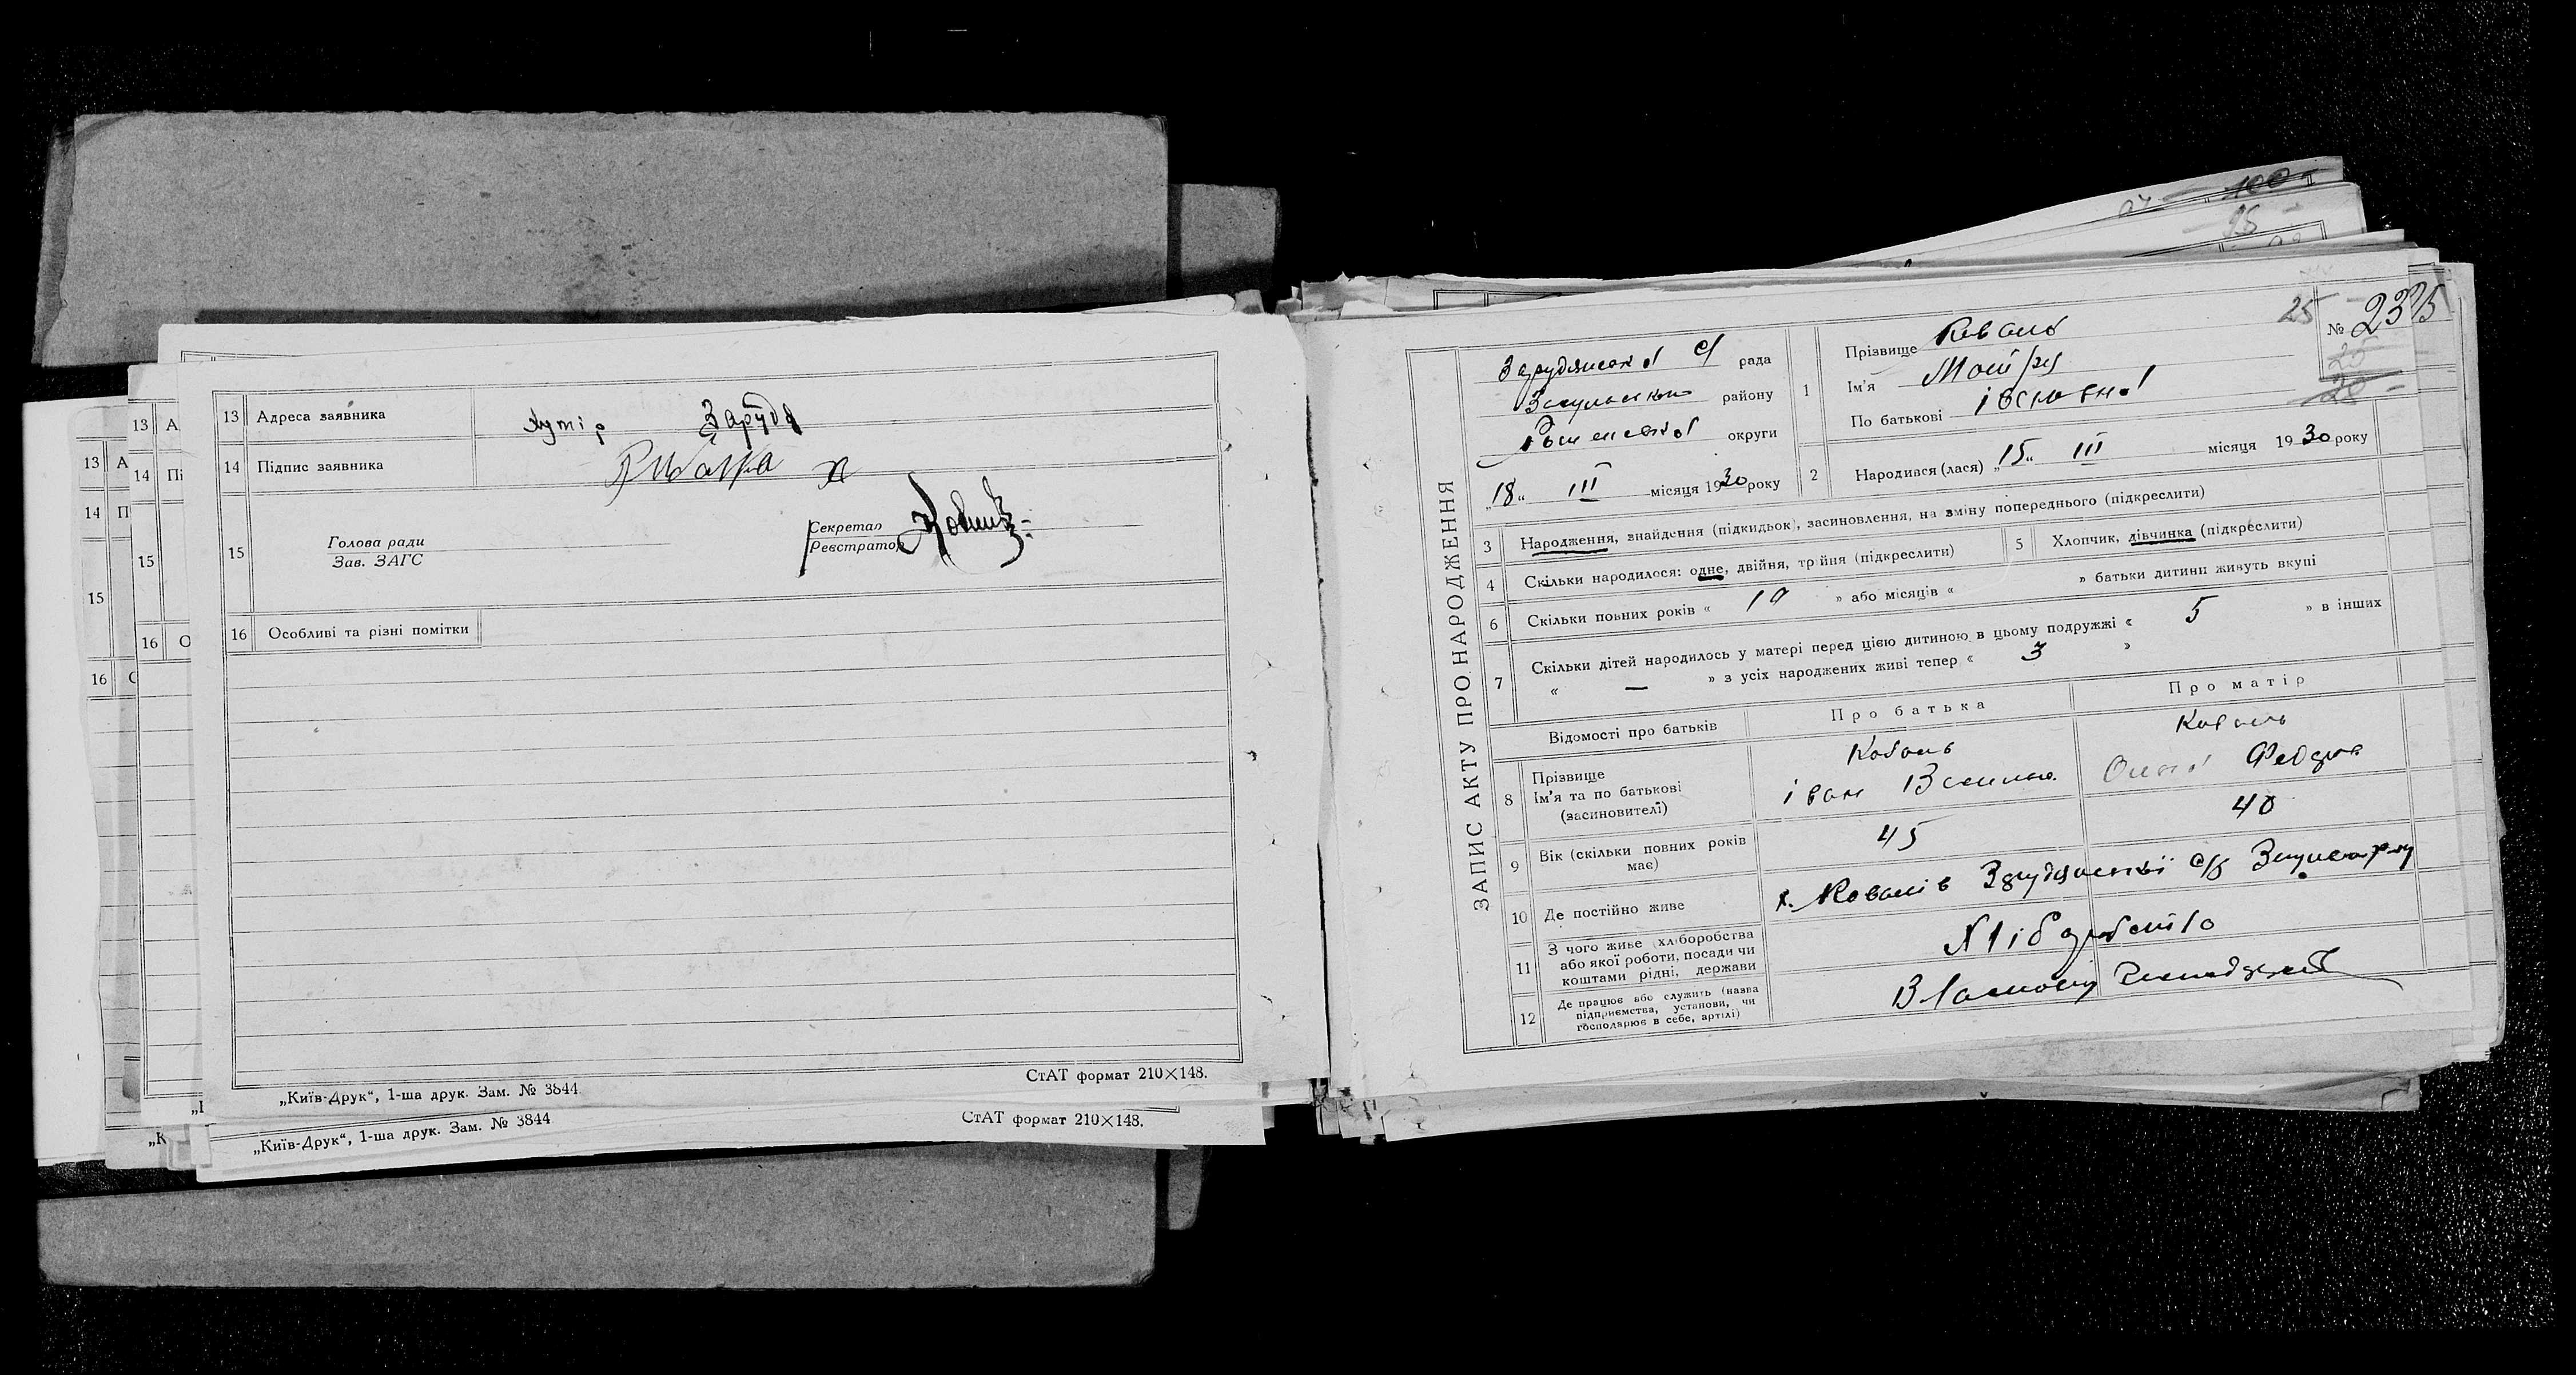 13 Адреса заявника хутір Заруда
14 Підпис заявника Рибалка
15 Голова ради
Зав. ЗАГС
Секретар
Реєстратор
16 Особливі та різні помітки
„Київ-Друк“, 1-ша друк. Зам. № 3844
СтАТ формат 210×148.
„Київ-Друк“, 1-ша друк. Зам. № 3844
СтАТ формат 210×148.
ЗАПИС АКТУ ПРО НАРОДЖЕННЯ
25
№
Зарудянської с/ рада
району
Роменської округи
„18“ III місяця 1930 року
1 Прізвище Коваль
Ім'я Мотря
По батькові Івановна
2 Народився (лася) „15“ III місяця 1930 року
3 Народження, знайдення (підкидьок), засиновлення, на зміну попереднього (підкреслити)
4 Скільки народилося: одне, двійня, трійня (підкреслити)
5 Хлопчик, дівчинка (підкреслити)
6 Скільки повних років « 19 » або місяців « » батьки дитини живуть вкупі
7 Скільки дітей народилось у матері перед цією дитиною в цьому подружжі « 5 » в інших
« — » з усіх народжених живі тепер « 3 »
Відомості про батьків Про батька Про матір
8 Прізвище
Ім'я та по батькові
(засновителі)
Коваль
Іван
Коваль
9 Вік (скільки повних років має) 45 40
10 Де постійно живе х. Ковалів Зарудянської с/р
11 З чого живе (хліборобства
або якої роботи, посади чи
коштами рідні, держави
Хліборобство
12 Де працює або служить (назва
підприємства, установи, чи
господарює в себе, артілі)
Власному